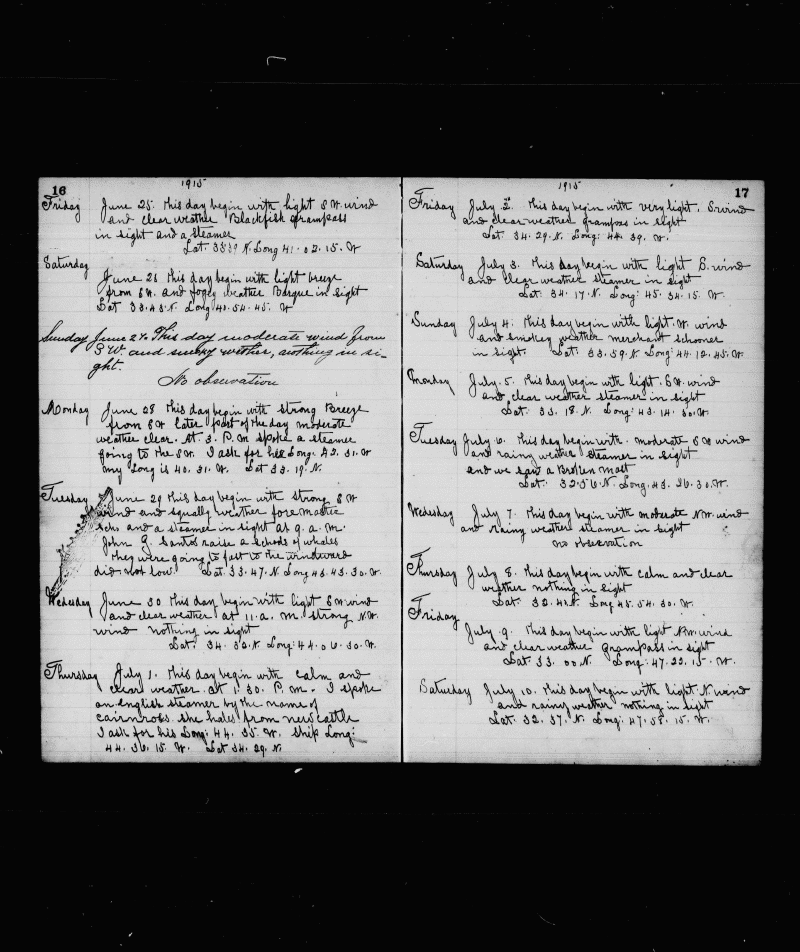 16
1915
Friday June 25. This day begin with light S W. wind
and clear weather Blackfish grampass
in sight and a steamer
Lat. 33 39 N. Long 41. 02. 15. W
Saturday
June 26 This day begin with light breeze
from S W. and fogey weather Barque in sight
Lat 33.43. N. Long 40. 54. 45. W
Sunday June 27. This day moderate wind from
S W. and smoky wether, nothing in si-
ght.
No observation
Monday June 28 This day begin with strong Breeze
from S W later part of the day moderate
weather clear. At 3. P. M spoke a steamer
going to the S W. I ask for his Long. 42. 31. W
my Long is 40. 31. W. Lat 33. 19. N.
Tuesday June 29 This day begin with strong S W
wind and squally weather fore mastic
Schr and a steamer in sight at 9. a. m.
John Q. Santos raise a schods of whales
they were going to fast to the windward
did not low. Lat. 33. 47. N. Long 43. 43. 30. W.
Wedesday June 30 This day begin with light S W wind
and clear weather at 11. a. m. strong N. W.
wind nothing in sight
Lat. 34. 32. N. Long: 44. 06. 30. W.
Thursday July 1. This day begin with calm and
clear weather. at 1. 30. P. M. I spoke
an english steamer by the name of
cairnross. she hales from newcattle
I ask for his Long: 44. 35. W. Ship Long:
44. 36. 15. W. Lat 34. 29. N.
1915
17
Friday July 2. This day begin with very light. S. wind
and clear weather grampas in sight
Lat. 34. 29. N. Long: 44. 39. W.
Saturday July 3. This day begin with light S. wind
and clear weather steamer in sight
Lat: 34. 17. N. Long: 45. 34. 15. W.
Sunday July 4: This day begin with light W. wind
and smokey weather merchant schooner
in sight. Lat: 33. 59. N. Long: 44. 12. 45. W.
Monday July. 5. This day begin with light. S W. wind
and clear weather steamer in sight
Lat: 33. 18. N. Long: 43. 14. 30. W.
Tuesday July 6. This day begin with. moderate S W wind
and rainy weather steamer in sight
and we saw a Broken mast
Lat: 32. 56. N. Long. 43. 26. 30. W.
Wedesday July 7. This day begin with moderate N W. wind
and rainy weather steamer in sight
no observation
Thursday July 8. This day begin with calm and clear
weather nothing in sight
Lat: 32. 41. N. Long 45. 54. 30. W.
Friday
July 9. This day begin with light N. W. wind
and clear weather grampass in sight
Lat 33. 00 N. Long: 47. 22. 15. W.
Satuday July 10. This day begin with light N. wind
and rainy weather nothing in sight
Lat: 32. 37. N. Long: 47. 58. 15. W.